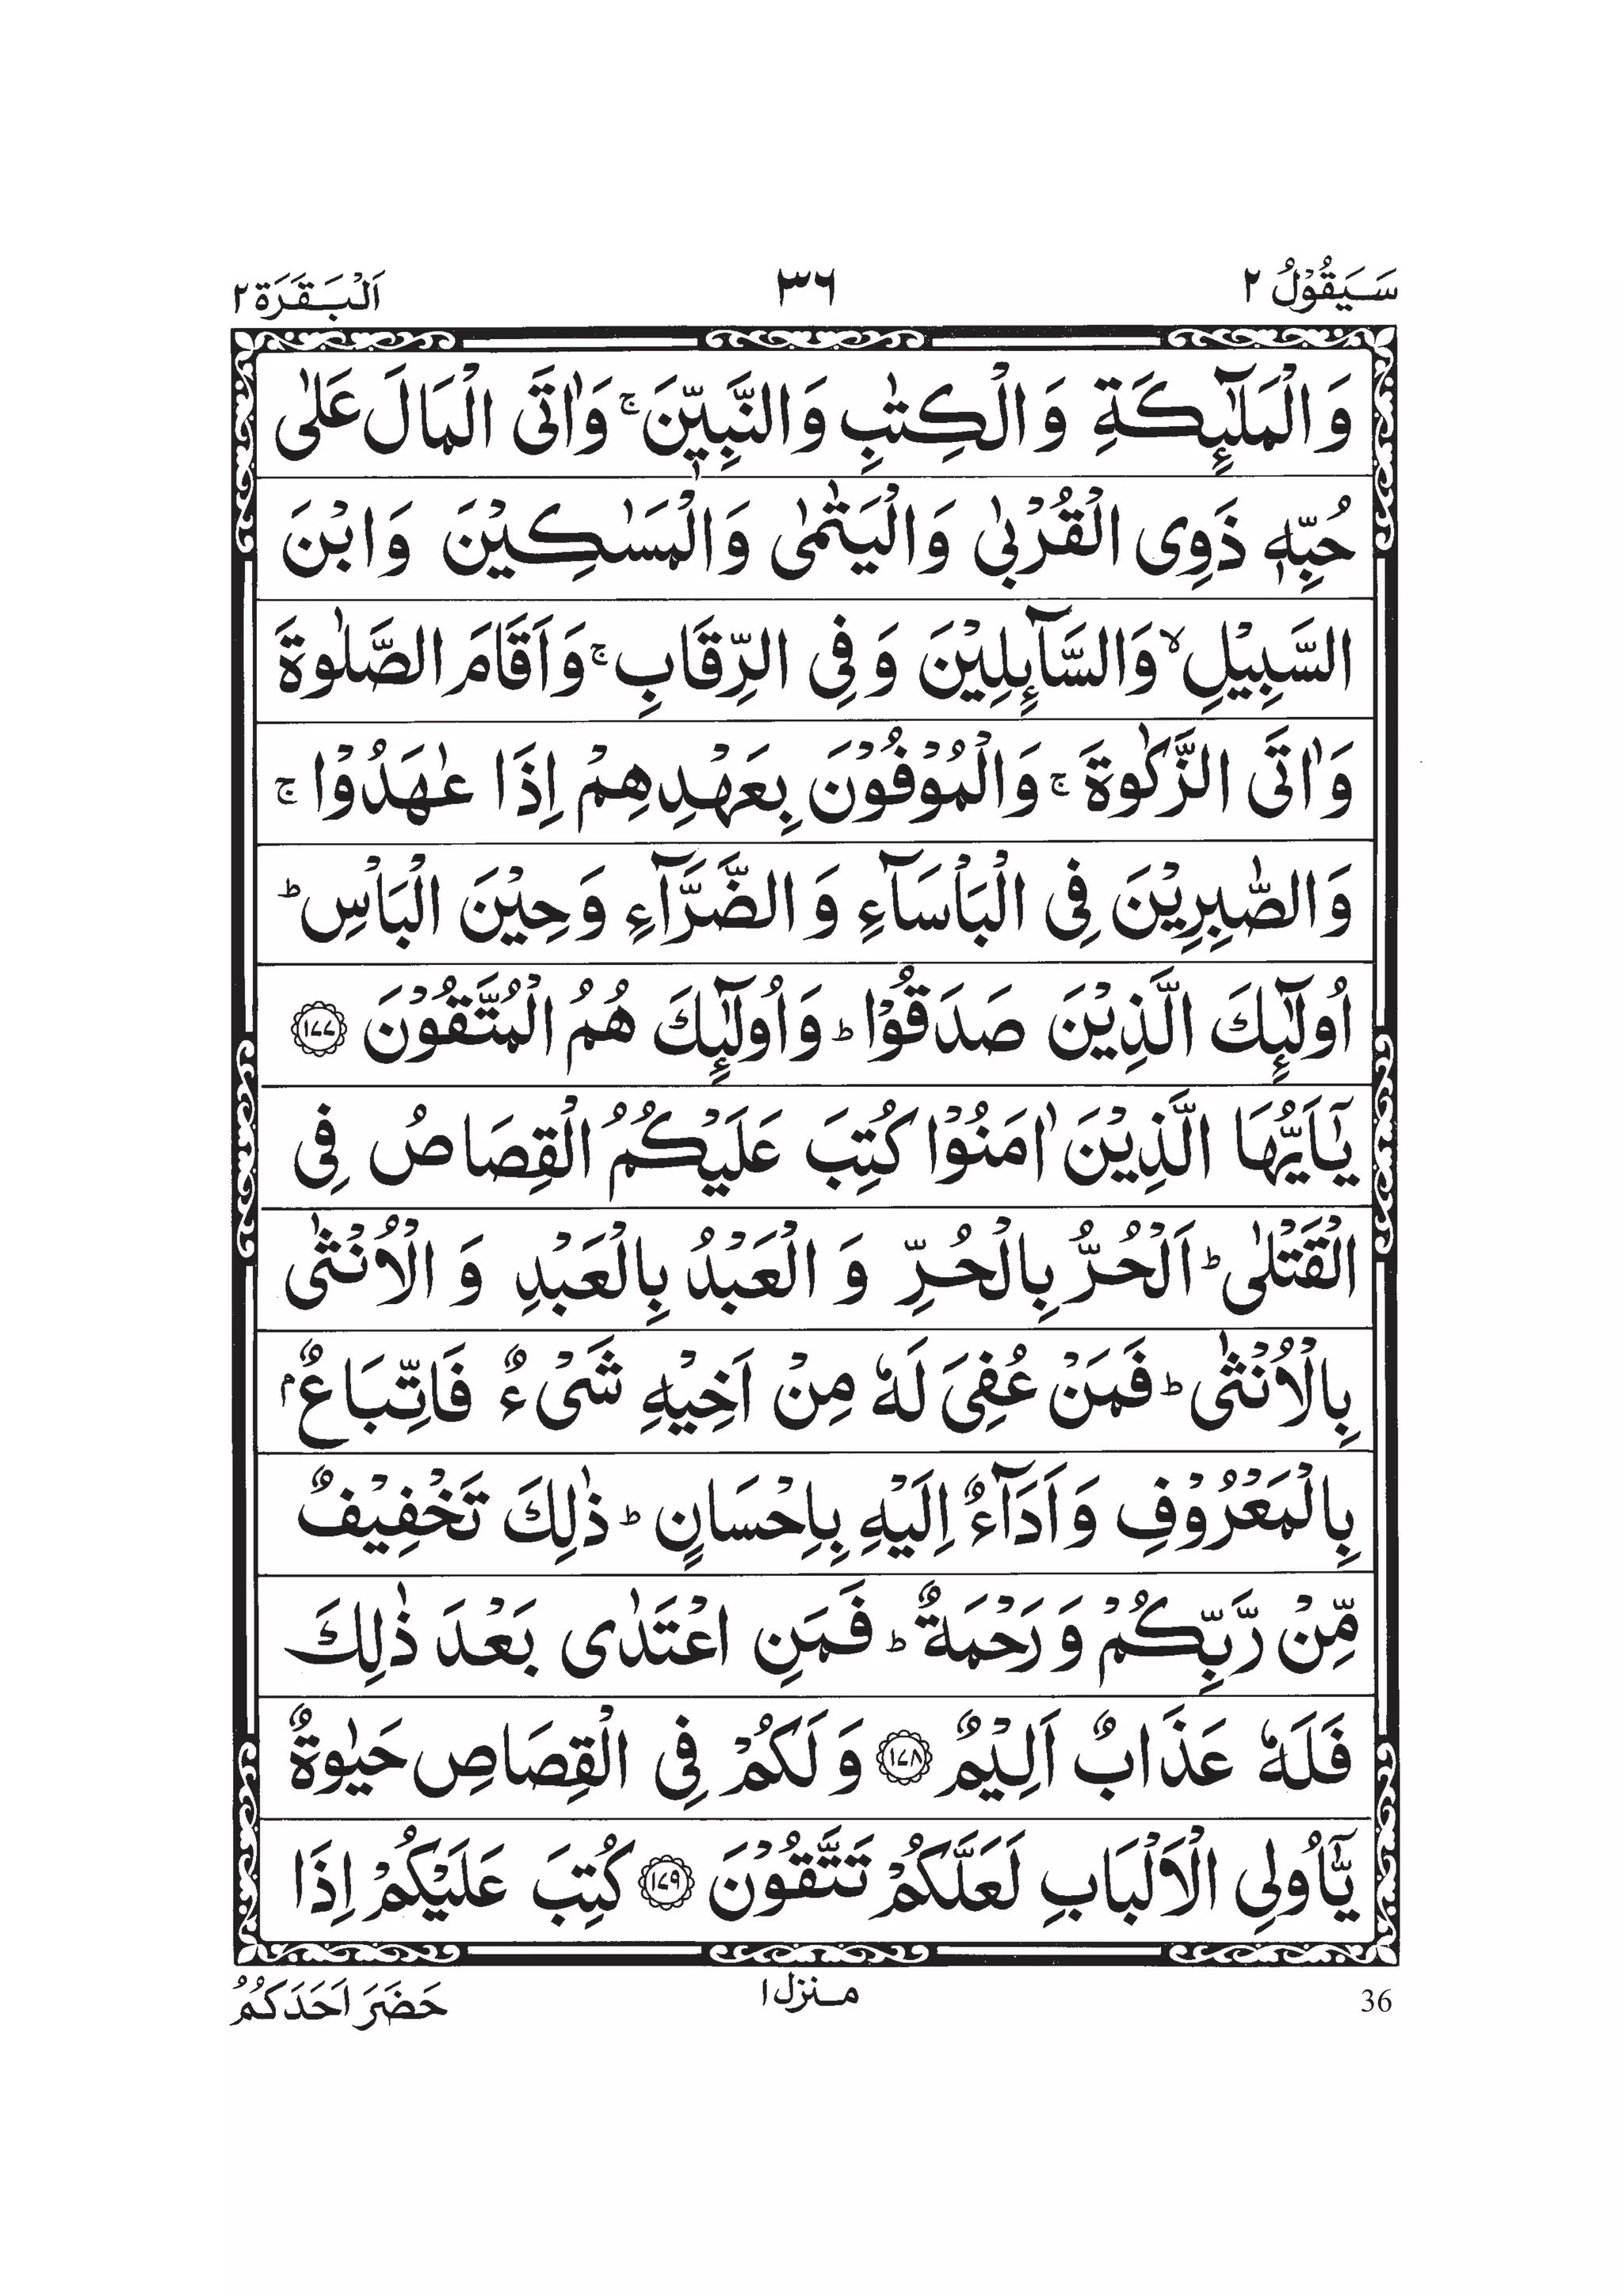 سَيَقُوْلُ ٢
٣٦
اَلْبَقَرَة ٢
وَ الْمَلٰٓئِكَةِ وَ الْكِتٰبِ وَالنَّبِيّٖنَ ۚ وَاٰتَى الْمَالَ عَلٰى
حُبِّهٖ ذَوِى الْقُرْبٰى وَالْيَتٰمٰى وَالْمَسٰكِيْنَ وَ ابْنَ
السَّبِيْلِ ۙ وَالسَّآئِلِيْنَ وَ فِى الرِّقَابِ ۚ وَاَقَامَ الصَّلٰوةَ
وَاٰتَى الزَّكٰوةَ ۚ وَالْمُوْفُوْنَ بِعَهْدِهِمْ اِذَا عٰهَدُوْا ۚ
وَالصّٰبِرِيْنَ فِى الْبَاْسَآءِ وَ الضَّرَّآءِ وَحِيْنَ الْبَاْسِ ؕ
اُولٰٓئِكَ الَّذِيْنَ صَدَقُوْا ؕ وَاُولٰٓئِكَ هُمُ الْمُتَّقُوْنَ ۝١٧٧
يٰٓاَيُّهَا الَّذِيْنَ اٰمَنُوْا كُتِبَ عَلَيْكُمُ الْقِصَاصُ فِى
الْقَتْلٰى ؕ اَلْحُرُّ بِالْحُرِّ وَ الْعَبْدُ بِالْعَبْدِ وَ الْاُنْثٰى
بِالْاُنْثٰى ؕ فَمَنْ عُفِىَ لَهٗ مِنْ اَخِيْهِ شَىْءٌ فَاتِّبَاعٌۢ
بِالْمَعْرُوْفِ وَاَدَآءٌ اِلَيْهِ بِاِحْسَانٍ ؕ ذٰلِكَ تَخْفِيْفٌ
مِّنْ رَّبِّكُمْ وَ رَحْمَةٌ ؕ فَمَنِ اعْتَدٰى بَعْدَ ذٰلِكَ
فَلَهٗ عَذَابٌ اَلِيْمٌ ۝١٧٨ وَ لَكُمْ فِى الْقِصَاصِ حَيٰوةٌ
يّٰۤاُولِى الْاَلْبَابِ لَعَلَّكُمْ تَتَّقُوْنَ ۝١٧٩ كُتِبَ عَلَيْكُمْ اِذَا
36
منزل ١
حَضَرَ اَحَدَكُمُ